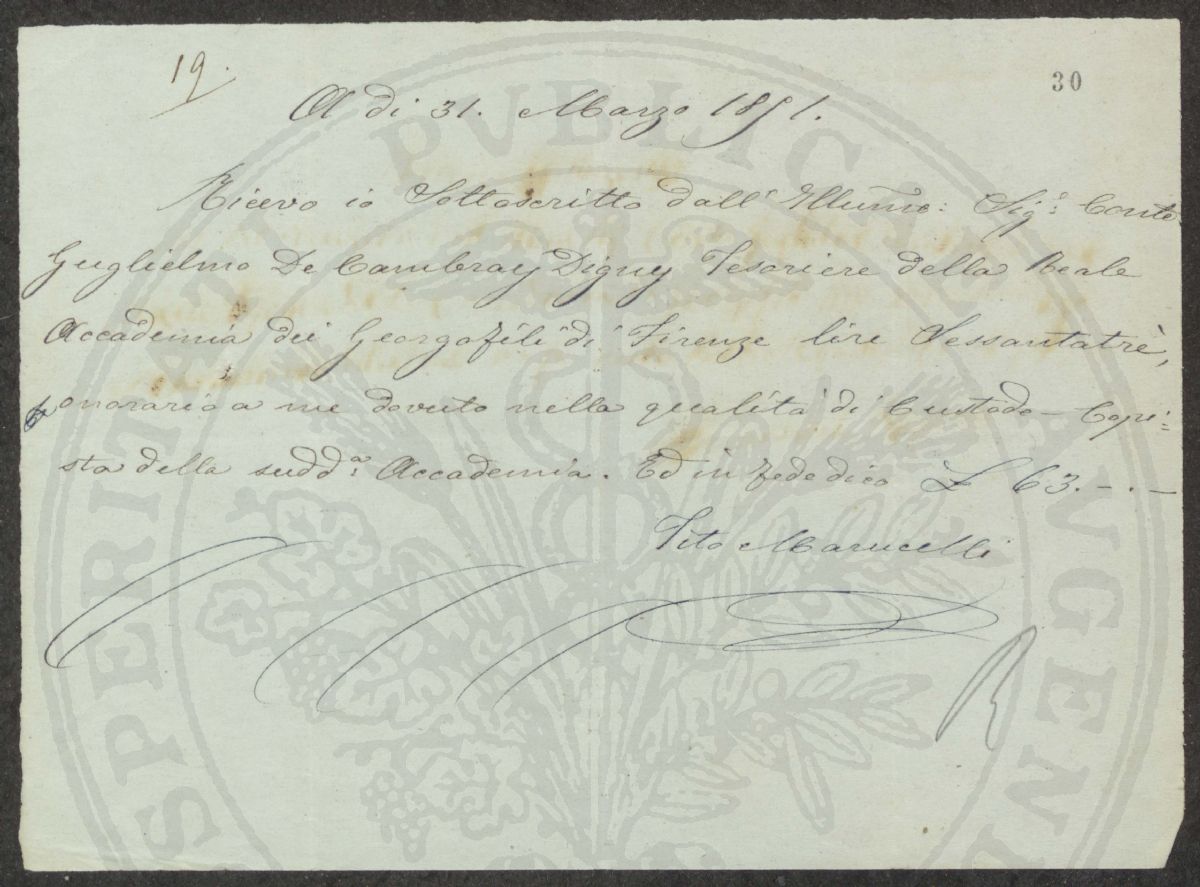 19.
30
A di 31. Marzo 1851.
Ricevo io Sottoscritto dall' Illumo: Sigr: Conte
Guglielmo De Cambray Digny Tesoriere della Reale
Accademia dei Georgofili di Firenze lire Sessantatrè,
onorario a me dovuto nella qualità di Custode - Copi=
sta della sudda: Accademia. Ed in fede dico £ 63. - . -
Tito Marucelli
R
PROSPERITATI PUBLICAE AUGENDAE